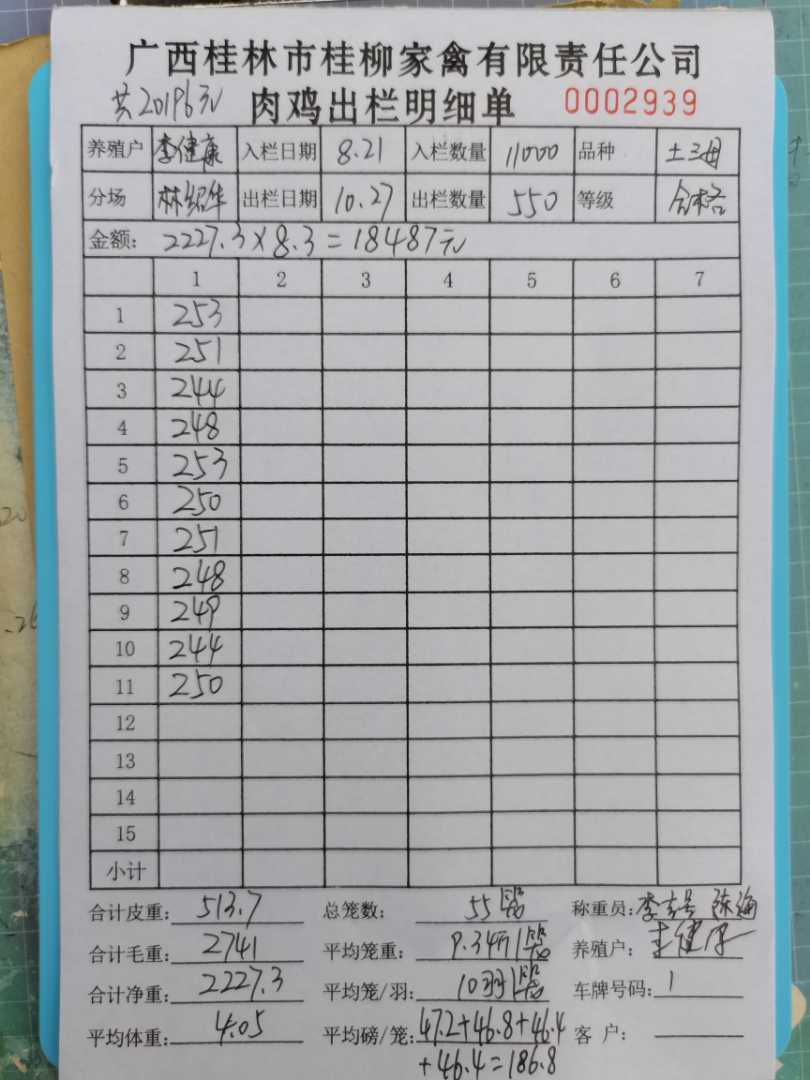 广西桂林市桂柳家禽有限责任公司
共20196元 肉鸡出栏明细单 0002939
养殖户 李健康 入栏日期 8.21 入栏数量 11000 品种 土三母
分场 林绍华 出栏日期 10.27 出栏数量 550 等级 合格
金额: 2227.3×8.3=18487元
1 2 3 4 5 6 7
1 253
2 251
3 244
4 248
5 253
6 250
7 251
8 248
9 249
10 244
11 250
12
13
14
15
小计
合计皮重: 513.7 总笼数: 55 称重员:
合计毛重: 2741 平均笼重: 9.34 养殖户: 李健康
合计净重: 2227.3 平均笼/羽: 10羽/ 车牌号码: 1
平均体重: 4.05 平均磅/笼: 47.2+46.8+46.4 客 户:
+46.4=186.8